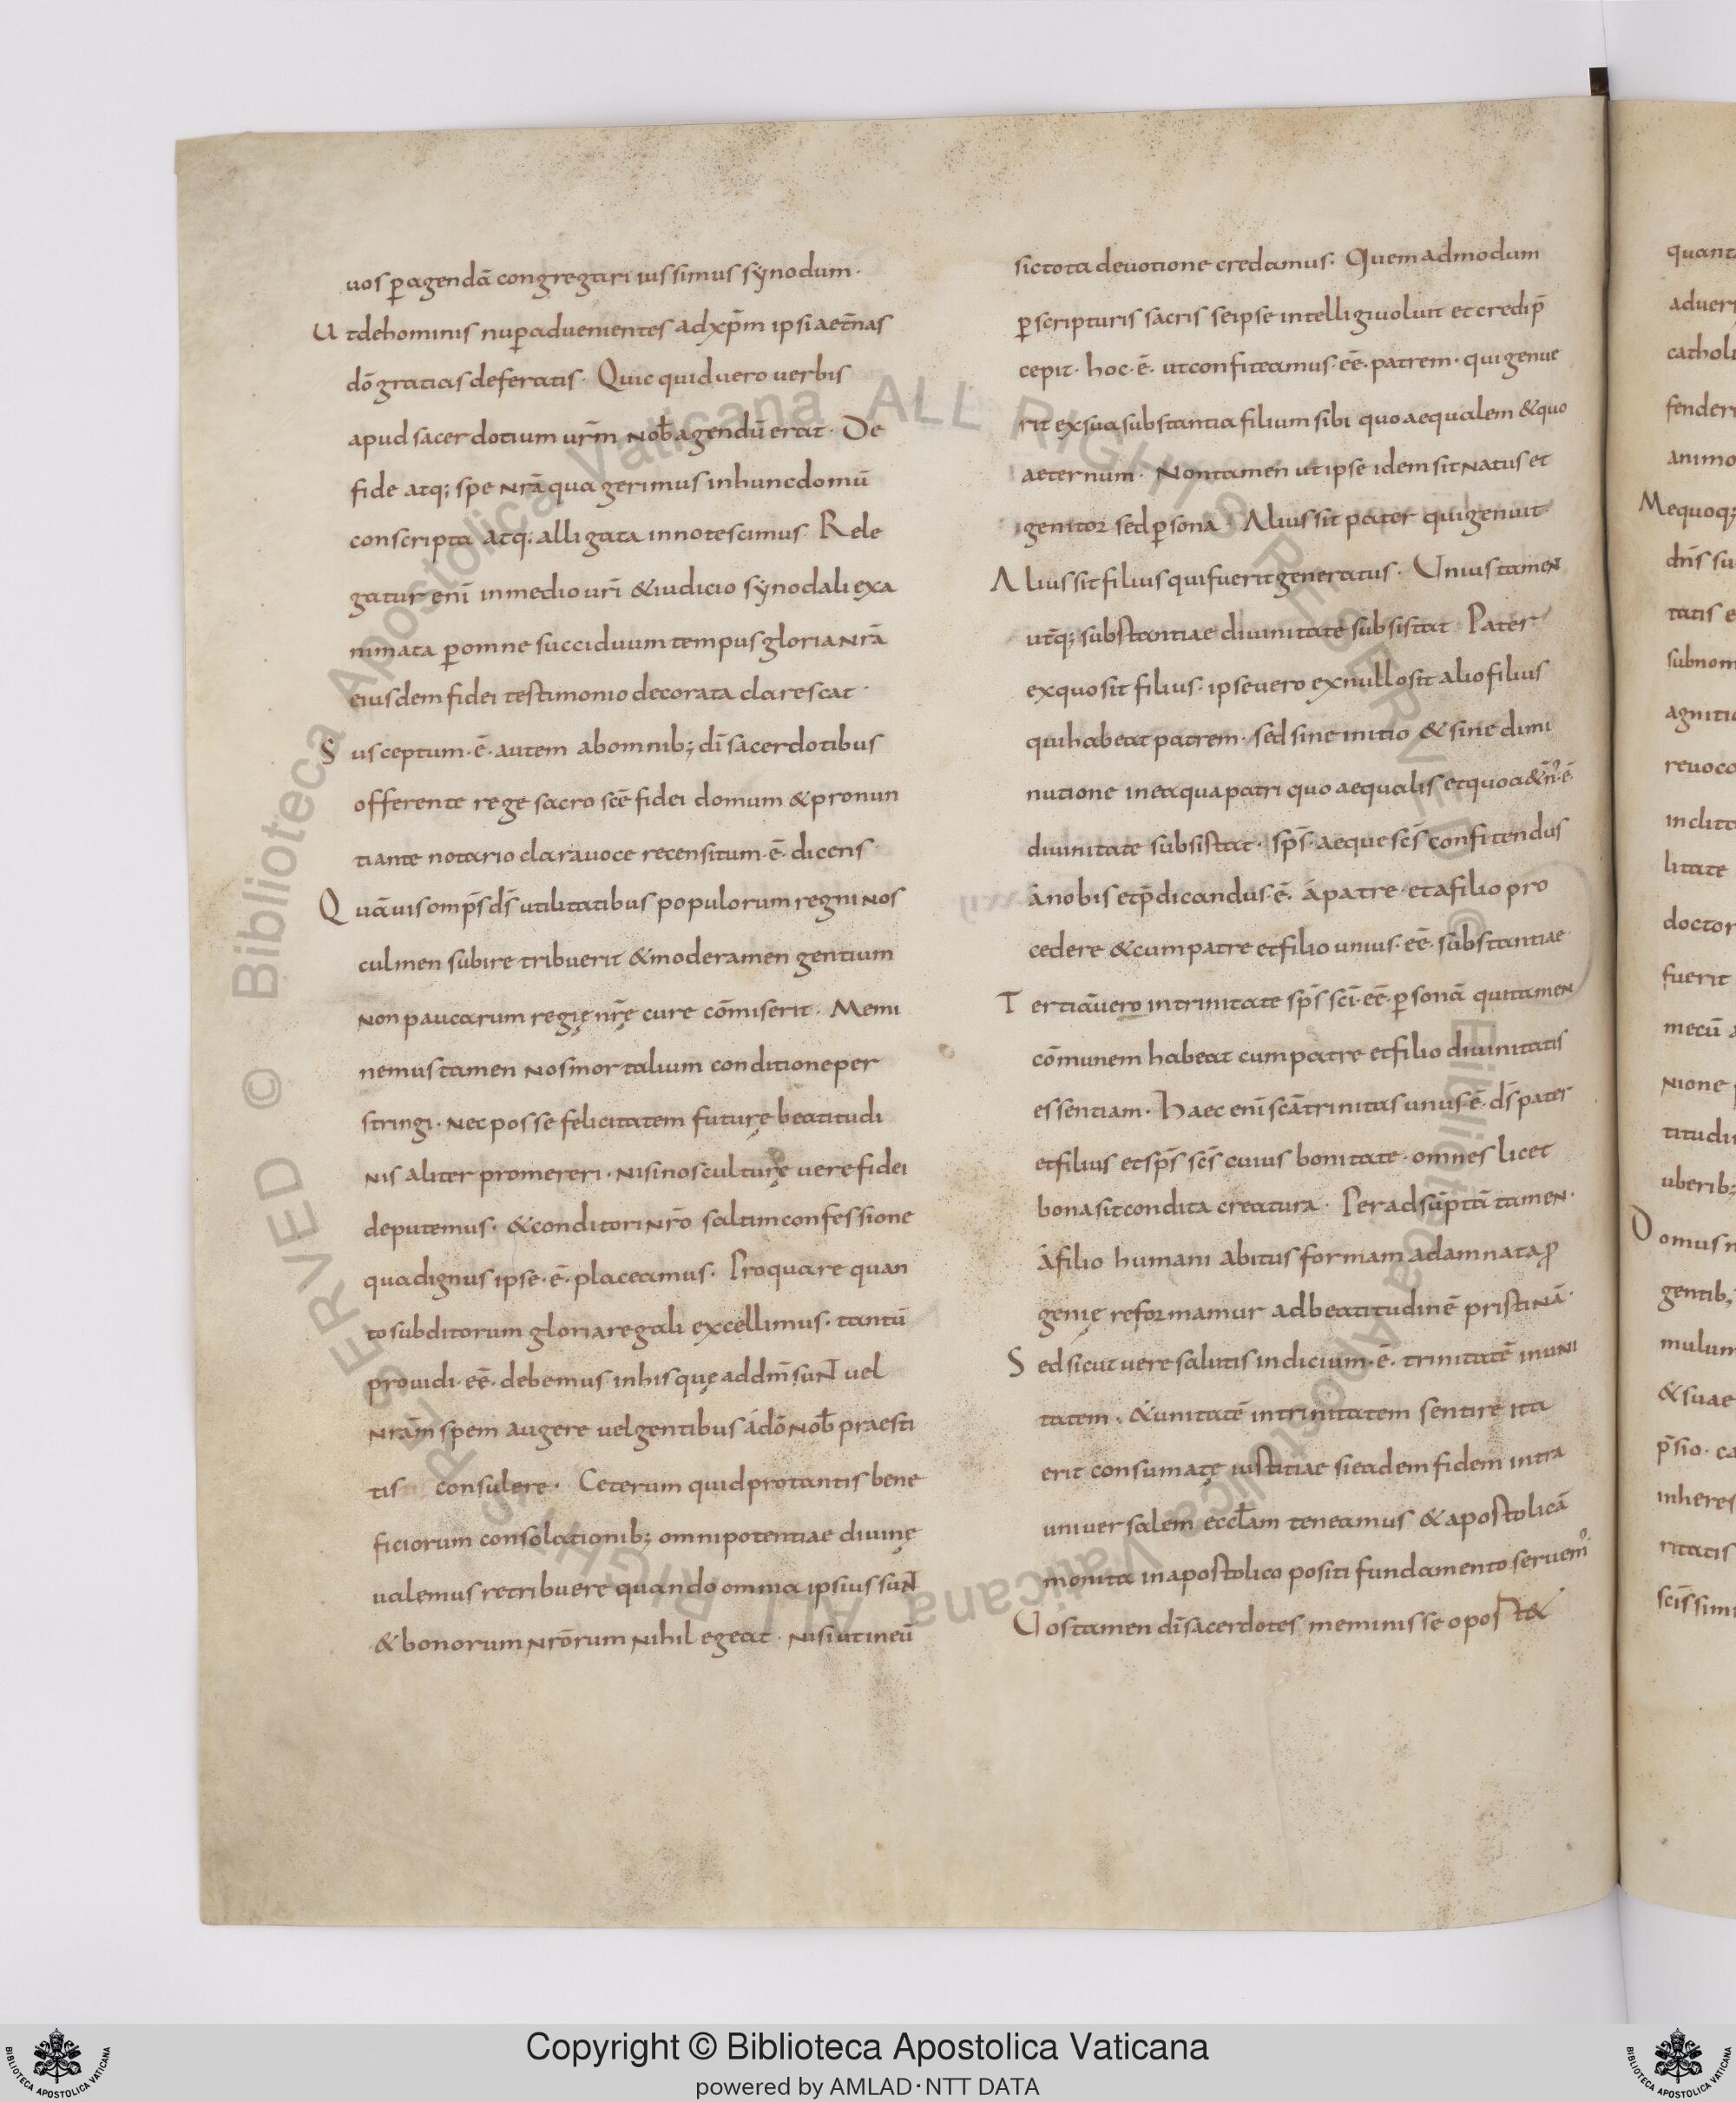 uos ꝑagendā congregari iussimus sẏnodum·
Ut dehominis nuꝑ aduenientes adxp̄m ipsi aet̄nas
dō gratias deferatis· Quic quid uero uerbis
apud sacerdotium ur̄m nob̄ agendū erat· De
fide atq; spe nr̄a qua gerimus inhunc domū
conscripta atq; alligata innotescimus· Rele
gatur enī inmedio ur̄i &iudicio sẏnodali exa
minata ꝑomne succiduum tempus gloria nr̄a
eiusdem fidei testimonio decorata clarescat·
Susceptum·ē· autem abomnib; dī sacerdotibus
offerente rege sacro scē fidei domum &pronun
tiante notario clara uoce recensitum·ē· dicens·
Quāuis omp̄s ds̄ utilitatibus populorum regni nos
culmen subire tribuerit &moderamen gentium
non paucarum regię nr̄ę cure cōmiserit· Memi
nemus tamen nos mortalium conditione per
stringi· nec posse felicitatem futurę beatitudi
nis aliter promereri· nisi nos culturę uere fidei
deputemus· &conditori nr̄o saltim confessione
qua dignus ipse·ē· placeamus· Pro quare quan
to subditorum gloria regali excellimus· tantū
prouidi·eē· debemus inhis quę addn̄m sunt uel
nr̄am spem augere uel gentibus ádō nob̄ praesti
tis consulere· Ceterum quid pro tantis bene
ficiorum consolationib; omnipotentiae diuinę
ualemus retribuere quando omnia ipsius sunt
&bonorum nr̄orum nihil egeat· nisi ut ineū
sic tota deuotione credamus· Quemadmodum
ꝑscripturis sacris seipse intelligi uoluit et credi p̄
cepit· hoc·ē· ut confiteamus·eē· patrem· qui genue
rit exsua substantia filium sibi quo aequalem &quo
aeternum· Non tamen ut ipse idem sit natus et
genitor sed ꝑsona Alius sit pater qui genuit·
Alius sit filius qui fuerit generatus· Unius tamen
ut̄q; substantiae diuinitate subsistat Pater
exquo sit filius· ipse uero exnullo sit alio filius
qui habeat patrem· sed sine initio &sine dimi
nutione inea qua patri quo aequalis et quo a&n̄ꝰ·ē·
diuinitate subsistat· sp̄s· aeque scs̄ confitendus
ánobis et p̄dicandus·ē· ápatre· et afilio pro
cedere &cum patre et filio unius·eē· substantiae·
Tertiā uero intrinitate sp̄s scī·eē· ꝑsonā qui tamen
cōmunem habeat cum patre et filio diuinitatis
essentiam· Haec enī scā trinitas unus·ē· ds̄ pater
et filius et sp̄s scs̄ cuius bonitate· omnes licet
bona sit condita creatura· Per adsūptā tamen·
áfilio humani abitus formam adamnata ꝓ
genię reformamur adbeatitudinē pristinā·
Sed sicut uere salutis indicium·ē· trinitatē inuni
tatem· &unitatē intrinitatem sentire ita
erit consumatę iustitiae si eadem fidem intra
uniuersalem eccl̄am teneamus &apostolicā
monita inapostolico positi fundamento seruemꝰ·
Uos tamen dī sacerdotes meminisse oport&